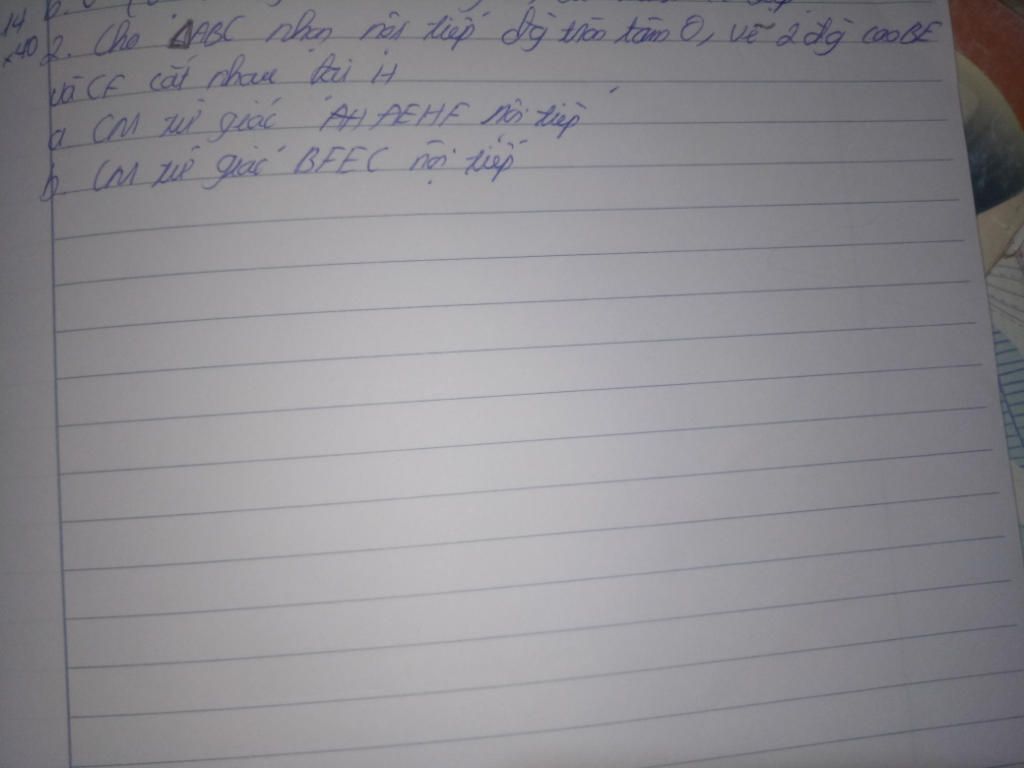 14
x40 2. Cho ΔABC nhọn nội tiếp đg tròn tâm O, vẽ 2 đg cao BE
và CF cắt nhau tại H
a CM tứ giác AEHF nội tiếp
b CM tứ giác BFEC nội tiếp